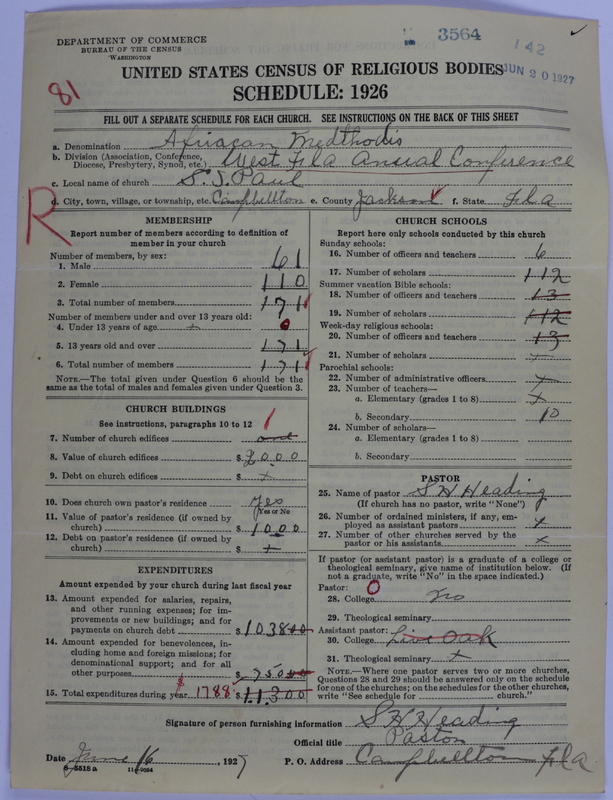 3564
142
JUN 20 1927
DEPARTMENT OF COMMERCE
BUREAU OF THE CENSUS
WASHINGTON
81
UNITED STATES CENSUS OF RELIGIOUS BODIES
SCHEDULE: 1926
FILL OUT A SEPARATE SCHEDULE FOR EACH CHURCH. SEE INSTRUCTIONS ON THE BACK OF THIS SHEET
a. Denomination Afriacan Medthodis
b. Division (Association, Conference, Diocese, Presbytery, Synod, etc.) West Fla Anual Conference
c. Local name of church S. J. Paul
d. City, town, village, or township, etc. Campbellton e. County Jackson f. State Fla
R
MEMBERSHIP
Report number of members according to definition of
member in your church
Number of members, by sex:
1. Male 61
2. Female 110
3. Total number of members 171
Number of members under and over 13 years old:
4. Under 13 years of age + 0
5. 13 years old and over 171
6. Total number of members 171
NOTE.—The total given under Question 6 should be the
same as the total of males and females given under Question 3.
CHURCH BUILDINGS
See instructions, paragraphs 10 to 12
7. Number of church edifices one 1
8. Value of church edifices $2000
9. Debt on church edifices $ +
10. Does church own pastor's residence yes
Yes or No
11. Value of pastor's residence (if owned by
church) $1000
12. Debt on pastor's residence (if owned by
church) $ +
EXPENDITURES
Amount expended by your church during last fiscal year
13. Amount expended for salaries, repairs,
and other running expenses; for im-
provements or new buildings; and for
payments on church debt $103800
14. Amount expended for benevolences, in-
cluding home and foreign missions; for
denominational support; and for all
other purposes $75000
15. Total expenditures during year $1788 $11300
CHURCH SCHOOLS
Report here only schools conducted by this church
Sunday schools:
16. Number of officers and teachers 6
17. Number of scholars 112
Summer vacation Bible schools:
18. Number of officers and teachers 13
19. Number of scholars 112
Week-day religious schools:
20. Number of officers and teachers 13
21. Number of scholars +
Parochial schools:
22. Number of administrative officers +
23. Number of teachers—
a. Elementary (grades 1 to 8) +
b. Secondary 10
24. Number of scholars—
a. Elementary (grades 1 to 8)
b. Secondary
PASTOR
25. Name of pastor S H Heading
(If church has no pastor, write "None")
26. Number of ordained ministers, if any, em-
ployed as assistant pastors +
27. Number of other churches served by the
pastor or his assistants +
If pastor (or assistant pastor) is a graduate of a college or
theological seminary, give name of institution below. (If
not a graduate, write "No" in the space indicated.)
Pastor: 0
28. College
29. Theological seminary
Assistant pastor:
30. College Live Oak
31. Theological seminary +
NOTE.—Where one pastor serves two or more churches,
Questions 28 and 29 should be answered only on the schedule
for one of the churches; on the schedules for the other churches,
write "See schedule for church."
Signature of person furnishing information S H Heading
Official title Pastor
Date June 16, 1927 P. O. Address Campbellton Fla